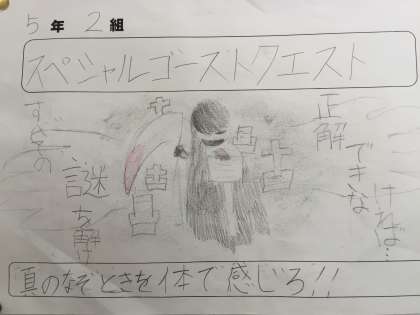 5年2組
スペシャルゴーストクエスト
正解
できな
ければ…
すべての
謎を解け
真のなぞときを体で感じろ!!